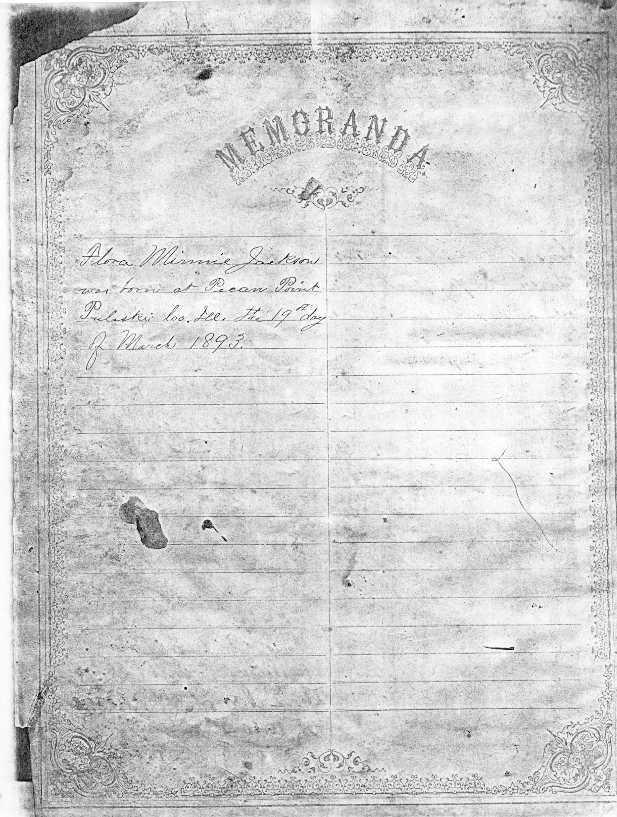 MEMORANDA
Flora Minnie Jackson
was born at Pecan Point
Pulaski Co. Ill. the 19th day
of March 1893.